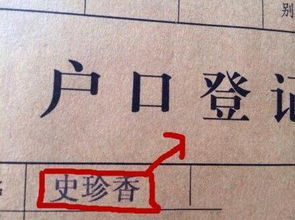 别
户口登记
史珍香